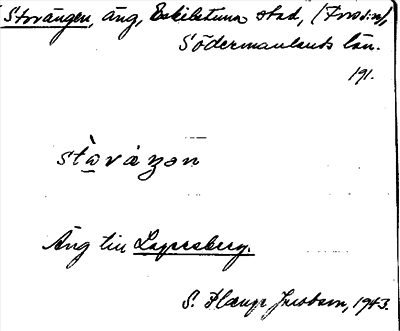 Storängen, äng, Eskilstuna stad, (Fors sn),
Södermanlands län.
191.
stàvàŋən
Äng till Lagersberg.
S. Jacobson, 1943.